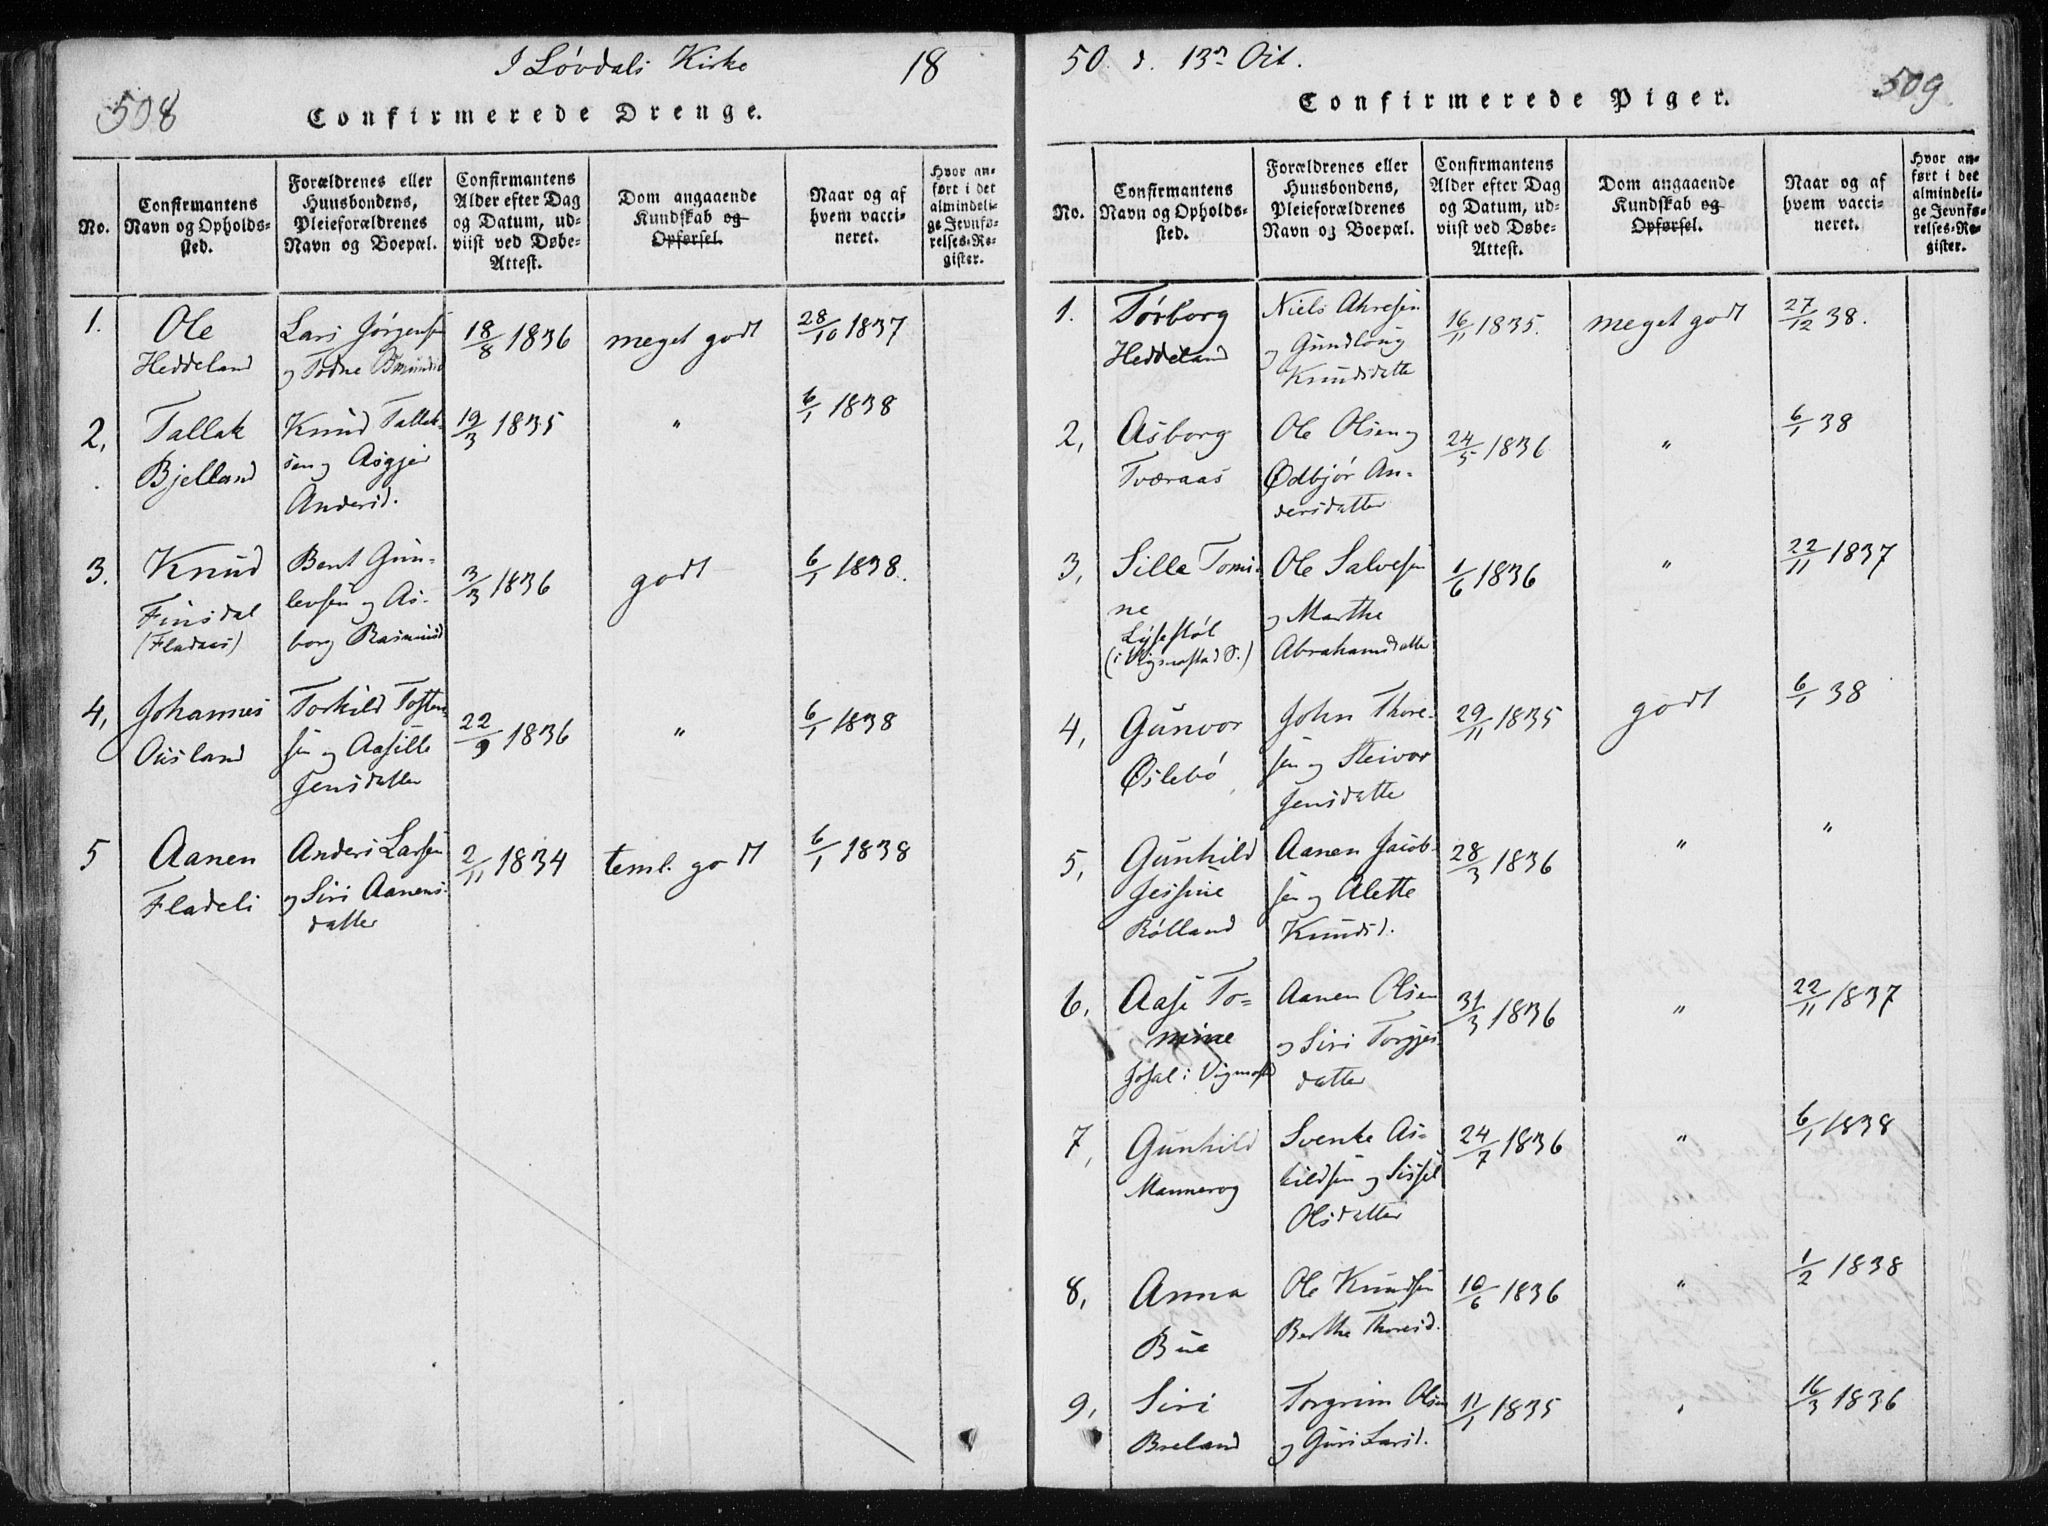 I Løvdals Kirke 18
508
Confirmerede Drenge.
No.
Confirmantens Navn og Opholdssted.
Forældrenes eller Huusbondens, Pleieforældrenes Navn og Boepæl.
Confirmantens Alder efter Dag og Datum, udviist ved Døbe-Attest.
Dom angaaende Kundskab og Opførsel.
Naar og af hvem vaccineret.
Hvor anført i det almindelige Jevnførelses-Register.
1. Ole Lars Jørgensen 18/8 1836 meget godt 28/10 1837
Heddeland og Todne
2, Tallak Knud Tallak- 19/3 1835 " 6/1 1838
Bjelland sen og Asgjer
Andersd.
3. Knud Bent Gun- 3/3 1836 godt 6/1 1838.
Finsdal levsen og As-
(Fladaas) borg Rasmusd
4, Johannes Torkild Tosten- 22/9 1836 " 6/1 1838
Ausland sen og Aasille
Jensdatter
5 Aanen Anders Larsen 2/11 1834 teml. godt 6/1 1838
Fladeli og Siri Aanens-
datter
50. d. 13de Oct.
509
Confirmerede Piger.
No.
Confirmantens Navn og Opholdssted.
Forældrenes eller Huusbondens, Pleieforældrenes Navn og Boepæl.
Confirmantens Alder efter Dag og Datum, udviist ved Døbe-Attest.
Dom angaaende Kundskab og Opførsel.
Naar og af hvem vaccineret.
Hvor anført i det almindelige Jevnførelses-Register.
1. Torborg Niels Akresen 16/11 1835. meget godt 27/12 38.
Heddeland og Gundloug
Knudsdatte
2, Asborg Ole Olsen og 24/5 1836 " 6/1 38
Tværaas Ødbjør An-
dersdatter
3, Sille Tomi- Ole Salvesen 1/6 1836 " 22/11 1837
ne og Marthe
Lysestøl Abrahamsdatte
(i Vigmostad S.)
4, Gunvor John Thore- 29/11 1835 godt 6/1 38
Øslebø sen og Steivor
Jensdatte
5, Gunhild Aanen Jacob- 28/3 1836 " "
Jessine sen og Alette
Rølland Knudsd.
6, Aase To- Aanen Olsen 31/3 1836 " 22/11 1837
mine og Siri Torgjes-
i Vigmostad datter
7, Gunhild Svenke As- 24/7 1836 " 6/1 1838
Mannerog kildsen og Sissel
Olsdatter
8, Anna Ole Knudsen 10/6 1836 " 1/2 1838
Bue Berthe Thoresd.
9, Siri Torgrim Olsen 11/1 1835 " 16/3 1836
Breland og Guri Larsd.